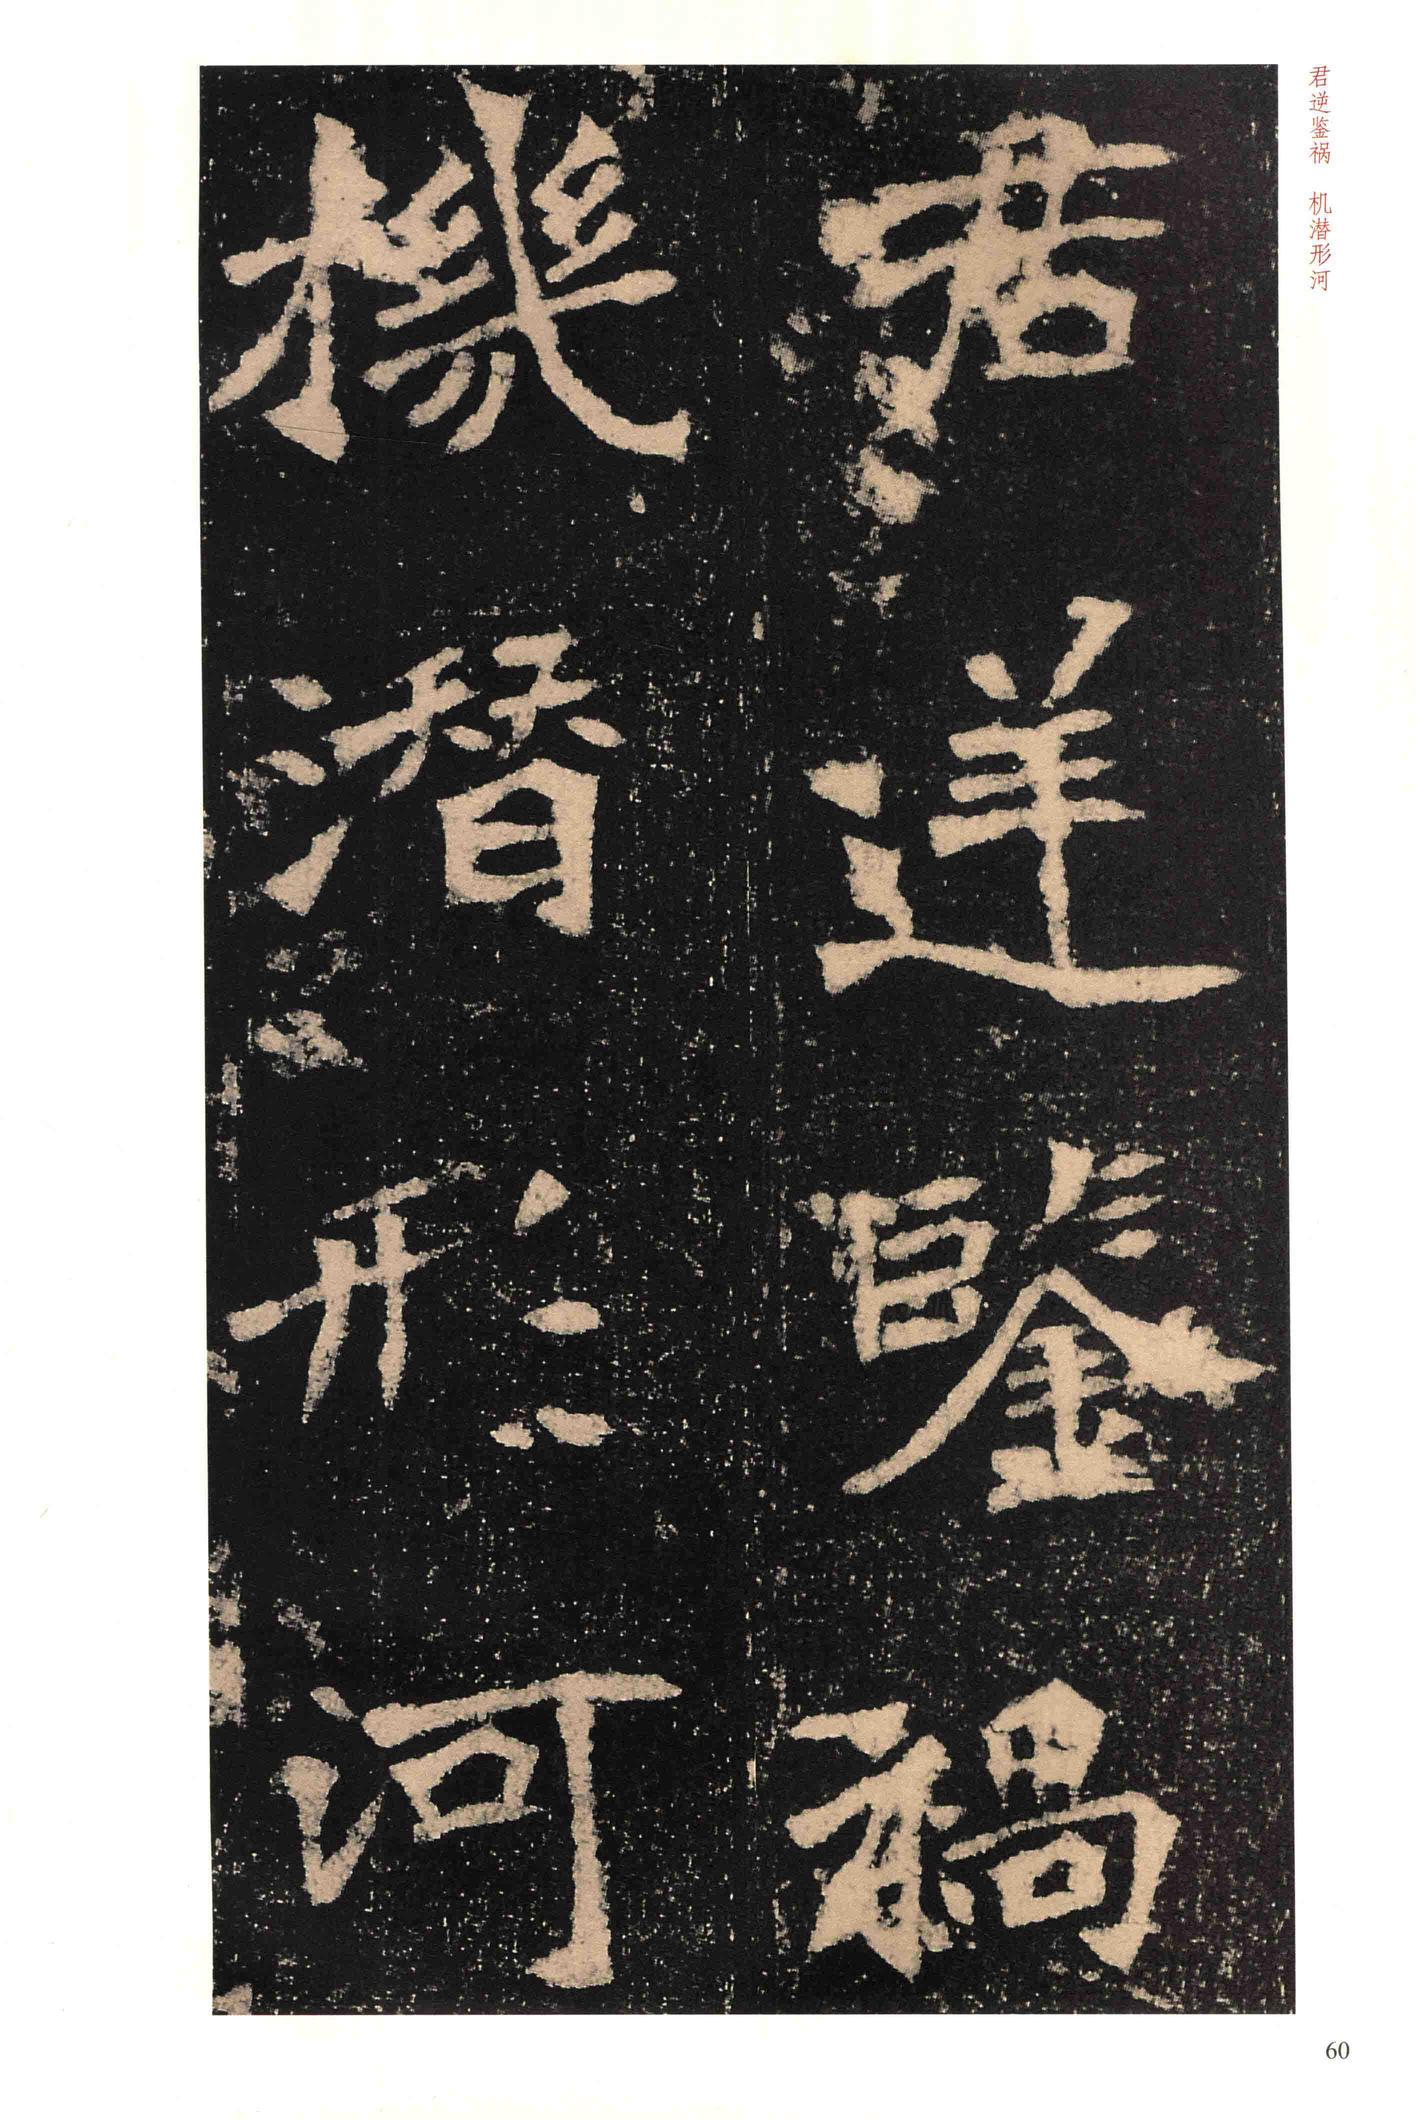 君逆鉴祸　机潜形河
君逆鑒禍
機潛形河
60